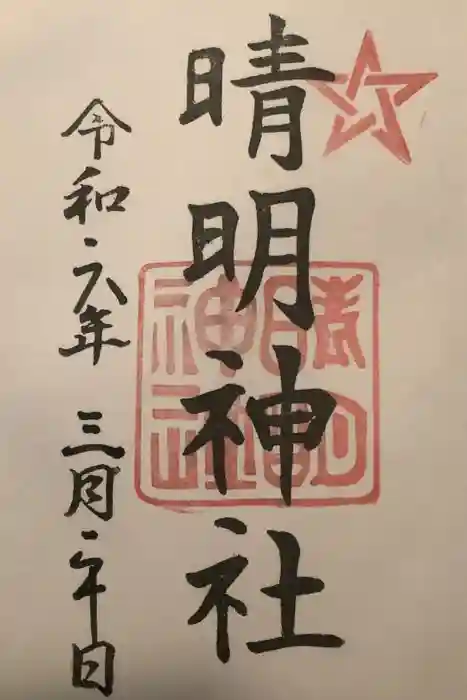 晴明神社
令和六年 三月二十日
晴明
神社